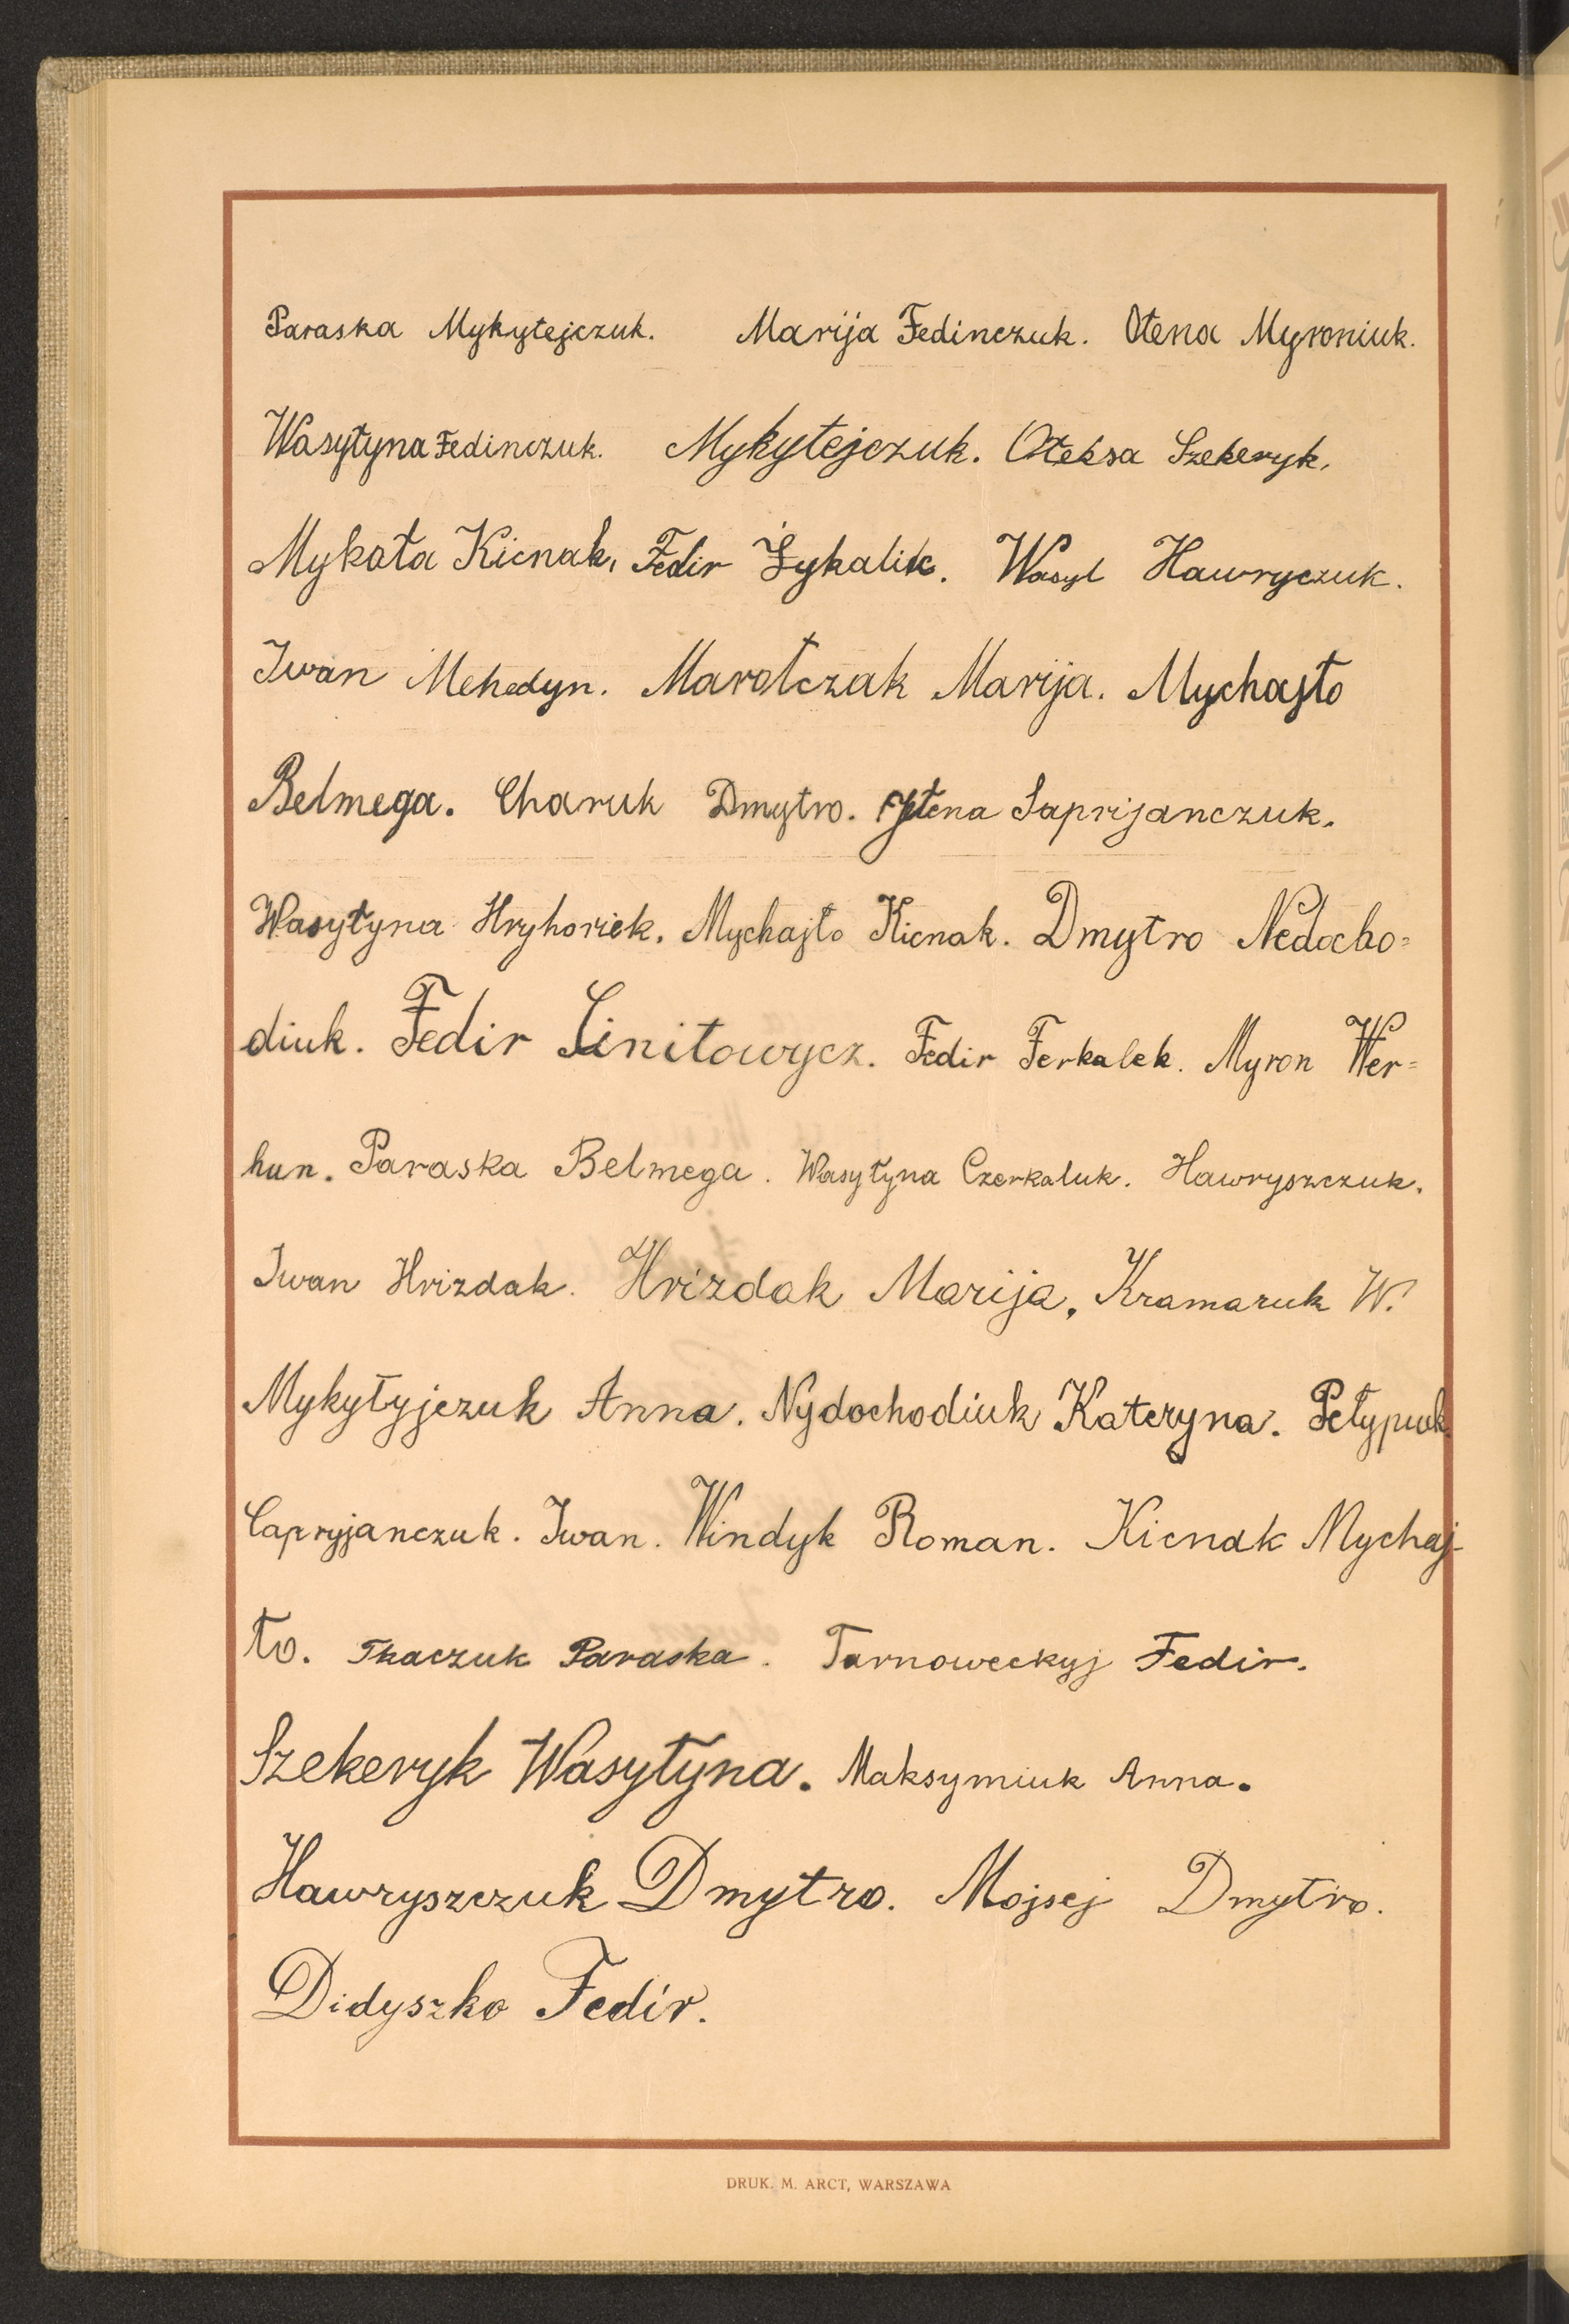 Paraska Mykytejczuk. Marija Fedinczuk. Ołena Myroniuk.
Wasyłyna Fedinczuk. Mykytejczuk. Ołeksa Szekeryk.
Mykoła Kicnak, Fedir Żykalik. Wasyl Hawryczuk.
Iwan Mehedyn. Marołczak Marija. Mychajło
Belmega. Charuk Dmytro. Saprijanczuk.
Wasyłyna Hryhoriek. Mychajło Kicnak. Dmytro Nedocho=
diuk. Fedir Linitowycz. Fedir Ferkalek. Myron Wer=
hun. Paraska Belmega. Wasyłyna Czerkaluk. Hawryszczuk.
Iwan Hrizdak. Hrizdak Marija, Kramaruk W.
Mykytyjczuk Anna. Nydochodiuk Kateryna. Petypuk.
Capryjanczuk. Iwan. Windyk Roman. Kicnak Mychaj-
ło. Tkaczuk Paraska. Tarnoweckyj Fedir.
Szekeryk Wasyłyna. Maksymiuk Anna.
Hawryszczuk Dmytro. Mojsej Dmytro.
Didyszko Fedir.
DRUK. M. ARCT, WARSZAWA